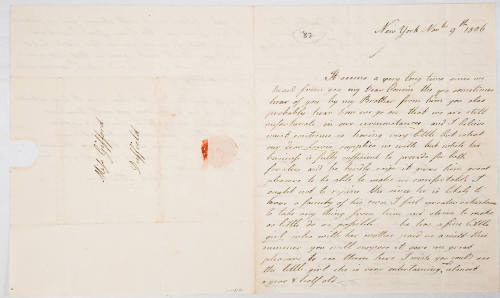 82
New York Nov. 9th 1806
It seems a very long time since we
heard from you my Dear Cousin tho we sometimes
hear of you by my Brother from him you also
probably hear how we go on that we are still
unfortunate in our circumstances and I believe
must continue so having very little but what
our dear supplies us with but while his
business is fully sufficient to provide for both
families and he kindly says it gives him great
pleasure to be able to make us comfortable it
ought not to
have a family of his own I feel reluctance
to take any thing from him and strive to make
as little do as possible he has a fine little
girl who with her mother paid us a visit this
summer you will suppose it gave me great
pleasure to see them here I wish you could see
the little girl she is very entertaining almost
a year & half old
Miss Gifford
Sheffield